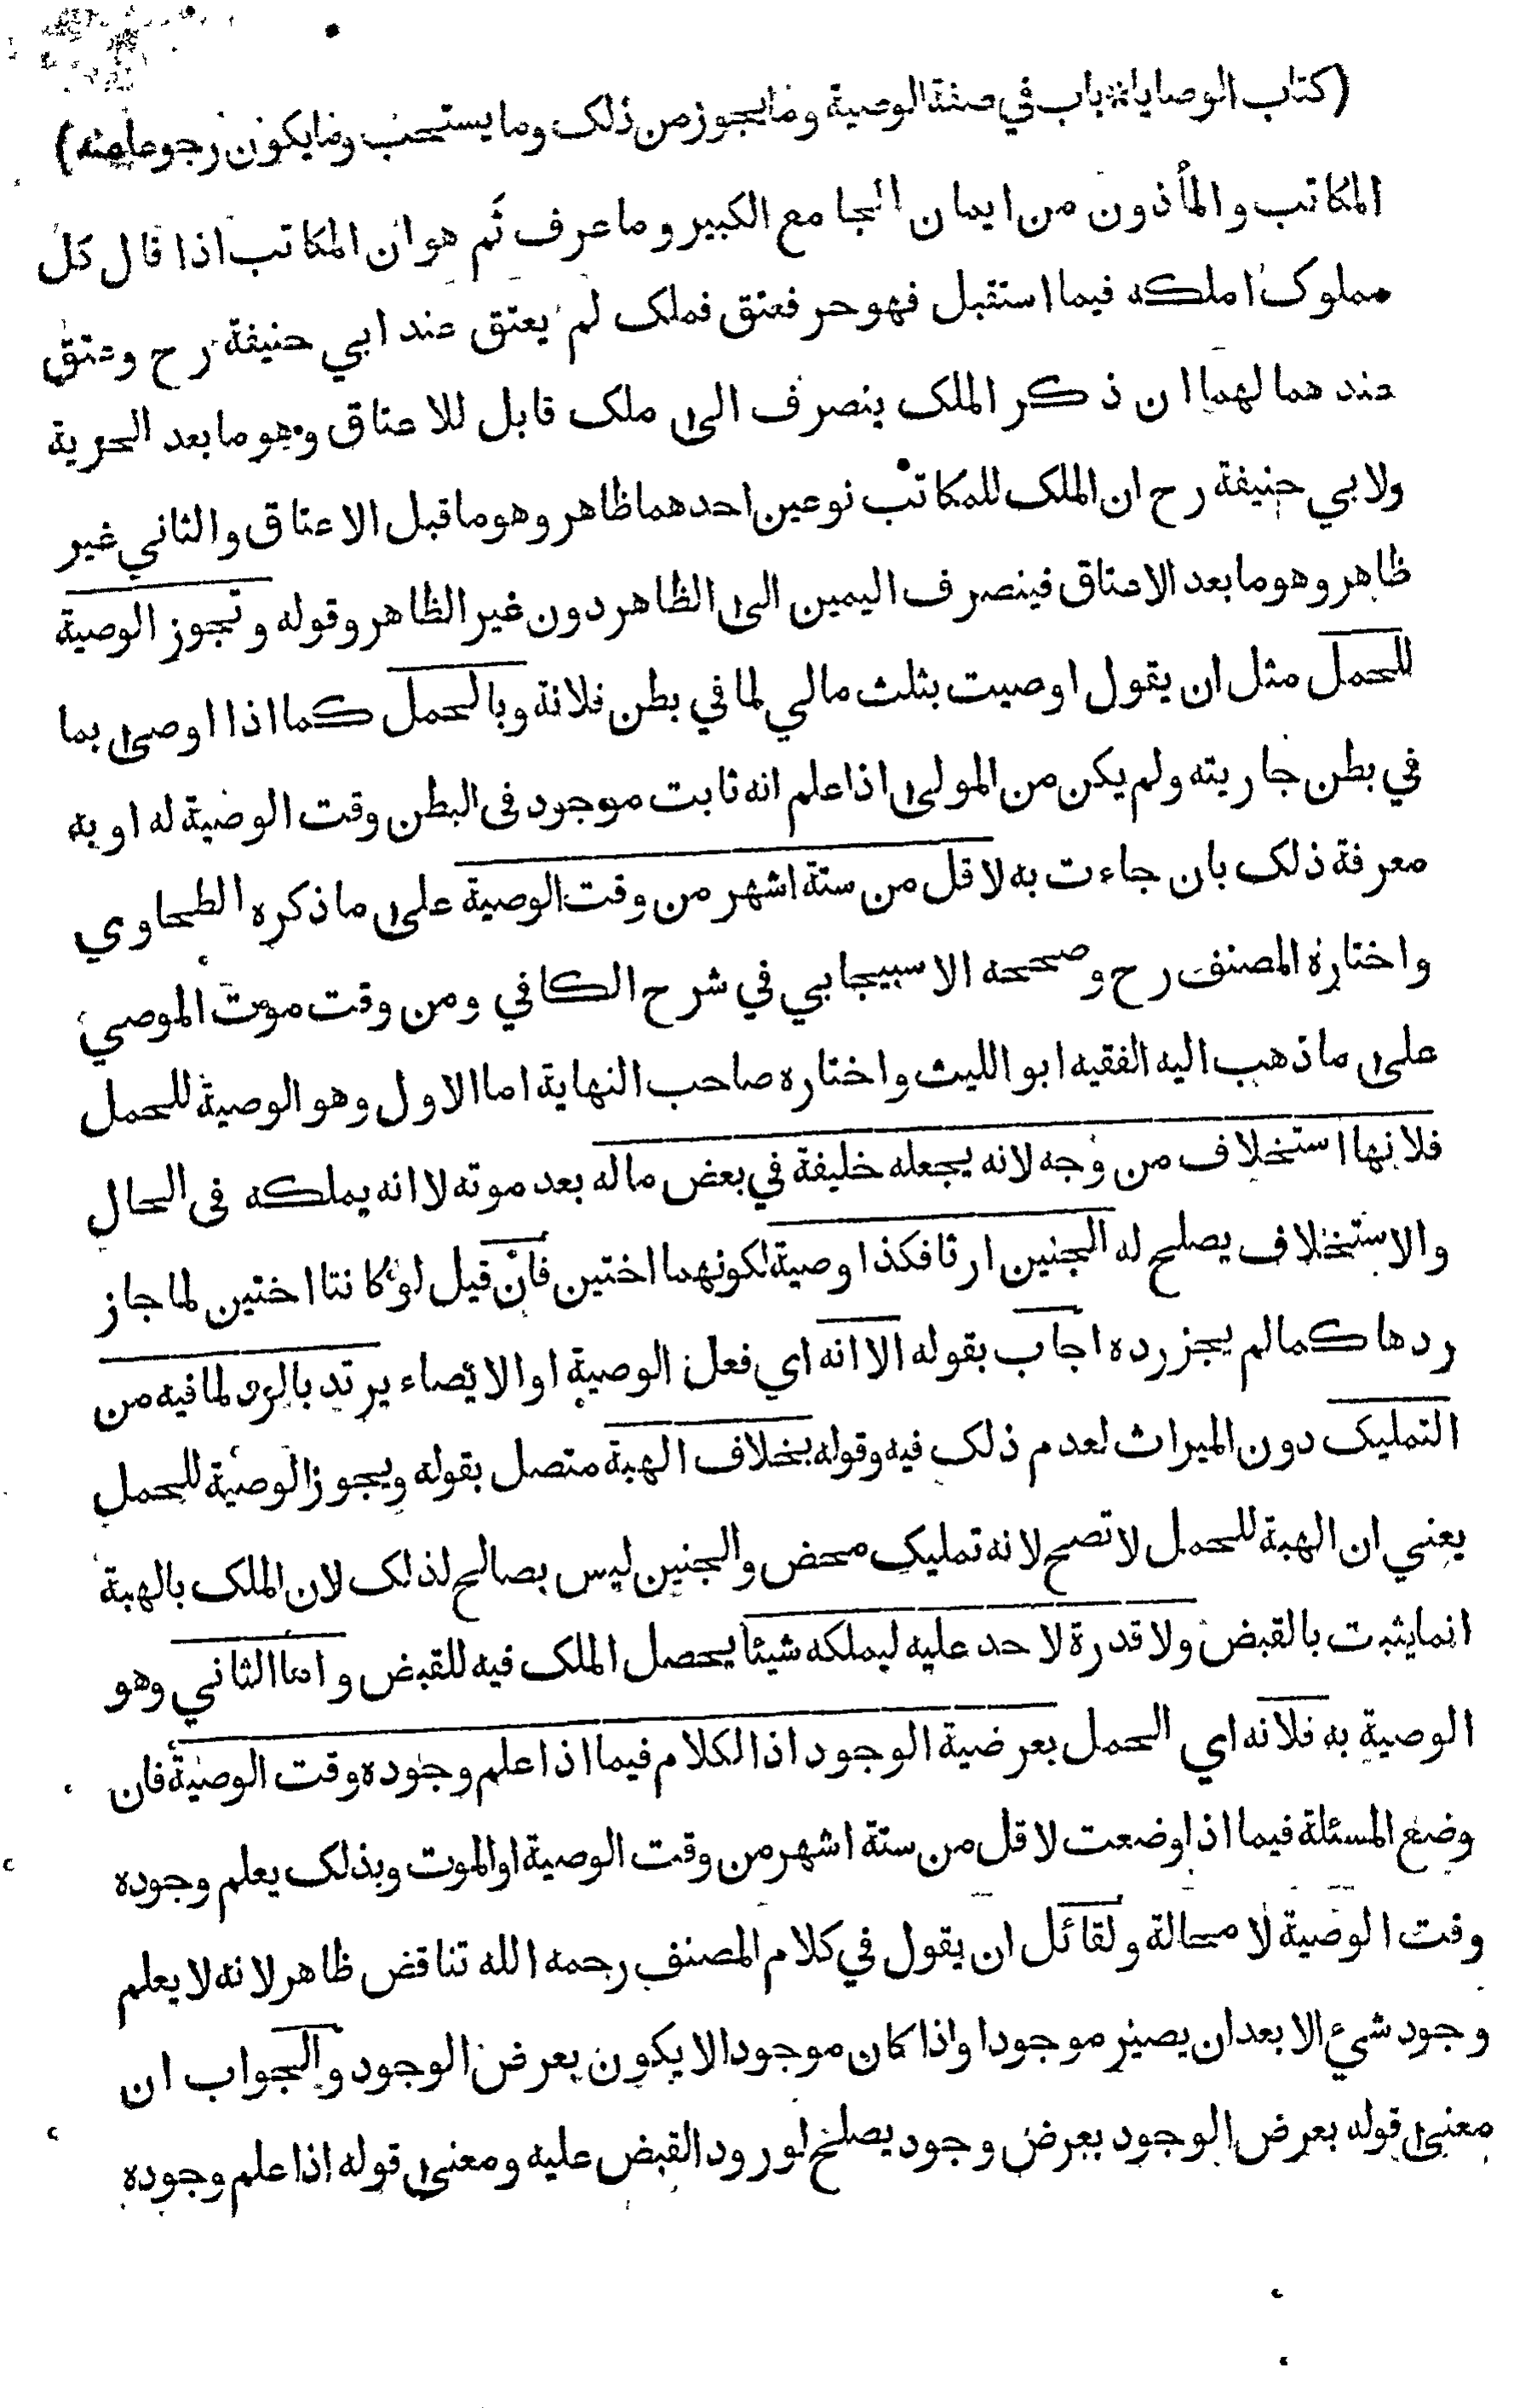 (كتاب الوصايا * باب في صفة الوصية وما يجوز من ذلك وما يستحب وما يكون رجوعا منه)
المكاتب والمأذون من ايمان الجامع الكبير وما عرف ثَم هو ان المكاتب اذا قال كل
مملوك املكه فيما استقبل فهو حر فعتق فملك لم يعتق عند ابي حنيفة رح وعتق
عندهما لهما ان ذكر الملك ينصرف الى ملك قابل للاعتاق وهو ما بعد الحرية
ولابي حنيفة رح ان الملك للمكاتب نوعين احدهما ظاهر وهو ما قبل الاعتاق والثاني غير
ظاهر وهو ما بعد الاعتاق فينصرف اليمين الى الظاهر دون غير الظاهر وقوله وتجوز الوصية
للحمل مثل ان يقول اوصيت بثلث مالي لما في بطن فلانة وبالحمل كما اذا اوصى بما
في بطن جاريته ولم يكن من المولى اذا علم انه ثابت موجود فى البطن وقت الوصية له او به
معرفة ذلك بان جاءت به لاقل من ستة اشهر من وقت الوصية على ما ذكره الطحاوي
واختاره المصنف رح وصححه الاسبيجابي في شرح الكافي ومن وقت موت الموصي
على ما ذهب اليه الفقيه ابو الليث واختاره صاحب النهاية اما الاول وهو الوصية للحمل
فلانها استخلاف من وجه لانه يجعله خليفة في بعض ماله بعد موته لا انه يملكه فى الحال
والاستخلاف يصلح له الجنين ارثا فكذا وصية لكونهما اختين فان قيل لو كانتا اختين لما جاز
ردها كما لم يجز رده اجاب بقوله الا انه اي فعل الوصية او الايصاء يرتد بالرد لما فيه من
التمليك دون الميراث لعدم ذلك فيه وقوله بخلاف الهبة متصل بقوله ويجوز الوصية للحمل
يعني ان الهبة للحمل لا تصح لانه تمليك محض والجنين ليس بصالح لذلك لان الملك بالهبة
انما يثبت بالقبض ولا قدرة لاحد عليه ليملكه شيئا يحصل الملك فيه للقبض واما الثاني وهو
الوصية به فلانه اي الحمل بعرضية الوجود اذ الكلام فيما اذا علم وجوده وقت الوصية فان
وضع المسئلة فيما اذا وضعت لاقل من ستة اشهر من وقت الوصية او الموت وبذلك يعلم وجوده
وقت الوصية لا محالة ولقائل ان يقول في كلام المصنف رحمه الله تناقض ظاهر لانه لا يعلم
وجود شيء الا بعد ان يصير موجودا واذا كان موجودا لا يكون بعرض الوجود والجواب ان
معنى قوله بعرض الوجود بعرض وجود يصلح لورود القبض عليه ومعنى قوله اذا علم وجوده